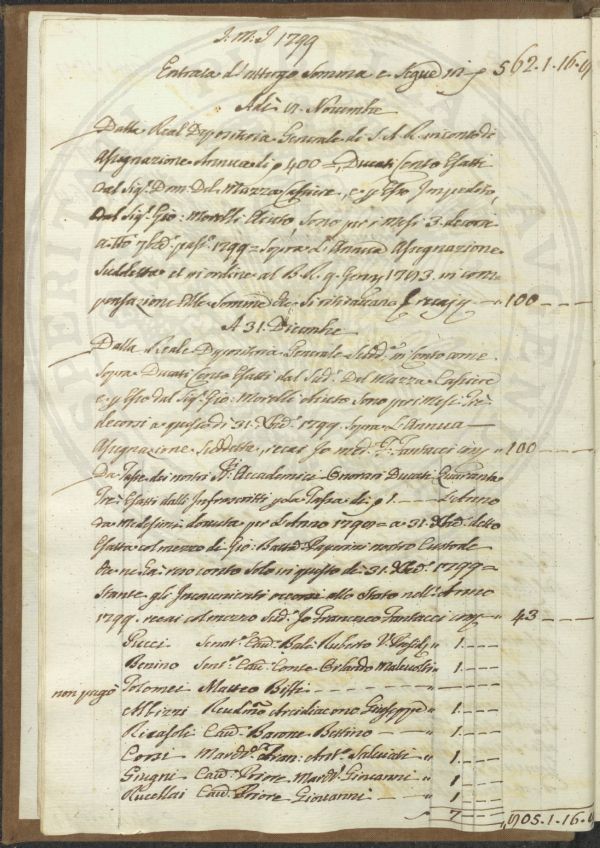 J. M. J 1799
Entrata di attergo Somma e Segue in 562.1.16
Adì Novembre
Dalla Real Depositeria Generale di S. A. R. in conto di
Assegnazione Annua di 400 = Ducati Cento Esatti
dal Sig.r Dom: Del Mazza Cassiere, e p Esso Impedito,
dal Sig.r Gio: Morelli Aiuto, sono per i Mesi 3. decorsi
a tto 7bre pass.o 1799 = Sopra L'Annua Assegnazione
Suddetta et in ordine al B. R. 9. Genn.o 1793. in com
pensazione delle Somme 100
A 31. Dicembre
Dalla Reale Depositeria Generale Sudd.a in Conto come
Sopra Ducati Cento Esatti dal Sud.o Del Mazza Cassiere
e p Esso dal Sig.r Gio: Morelli Aiuto Sono per i Mesi Tre
decorsi a questo dì 31. Xbre 1799 Sopra L'Annua
Assegnazione Suddetta, recai Io med.o F. Fantacci 100
Da Tasse dai nostri SS.ri Accademici Onorari Ducati Quaranta
Tre Esatti dalli Infrascritti p la Tassa di 1. L'Anno
da Medesimi dovuta per L'Anno 1799 = a 31. Xbre detto
Esatta col mezzo di Gio: Batt.a nostro Custode
conto Solo in questo dì 31. Xbre 1799 =
Stante gl' Inconvenienti occorsi allo Stato nell' Anno
1799. recai col mezzo Sud.o Io Francesco Fantacci 43
Pucci Senat.e Cav: Balì Ruberto 1.
Benino Sen.e Cav: Conte Orlando Malevolti 1.
non pagò Tolomei Matteo Biffi
Albizzi Reud.mo Arcidiacono Giuseppe 1.
Ricasoli Cav: Barone Bettino 1.
Corsi March.e Fran: Ant.o Salviati 1.
Giugni Cav: Priore March.e Giovanni 1.
Rucellai Cav: Priore Giovanni 1
7 705.1.16